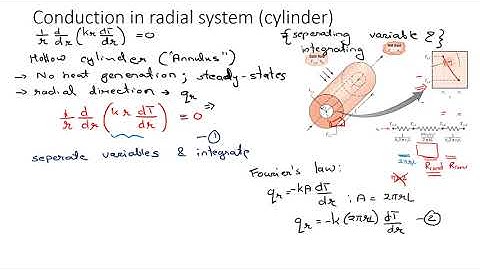 Conduction in radial system (cylinder)
1/r d/dr (kr dT/dr) = 0
Hollow cylinder ("Annulus")
→ No heat generation ; steady-states
→ radial direction → qr ⇒
1/r d/dr (kr dT/dr) = 0
—①
seperate variables & integrate
{separating variable &}
integrating
Fourier's law:
qr = -kA dT/dr ; A = 2πrL
qr = -k (2πrL) dT/dr —②